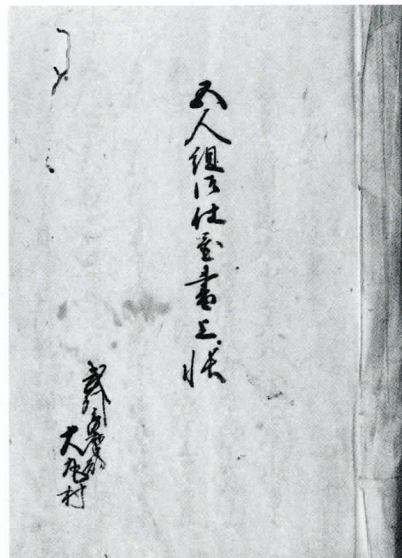 五人組御仕置書上帳
武州多摩郡
大丸村